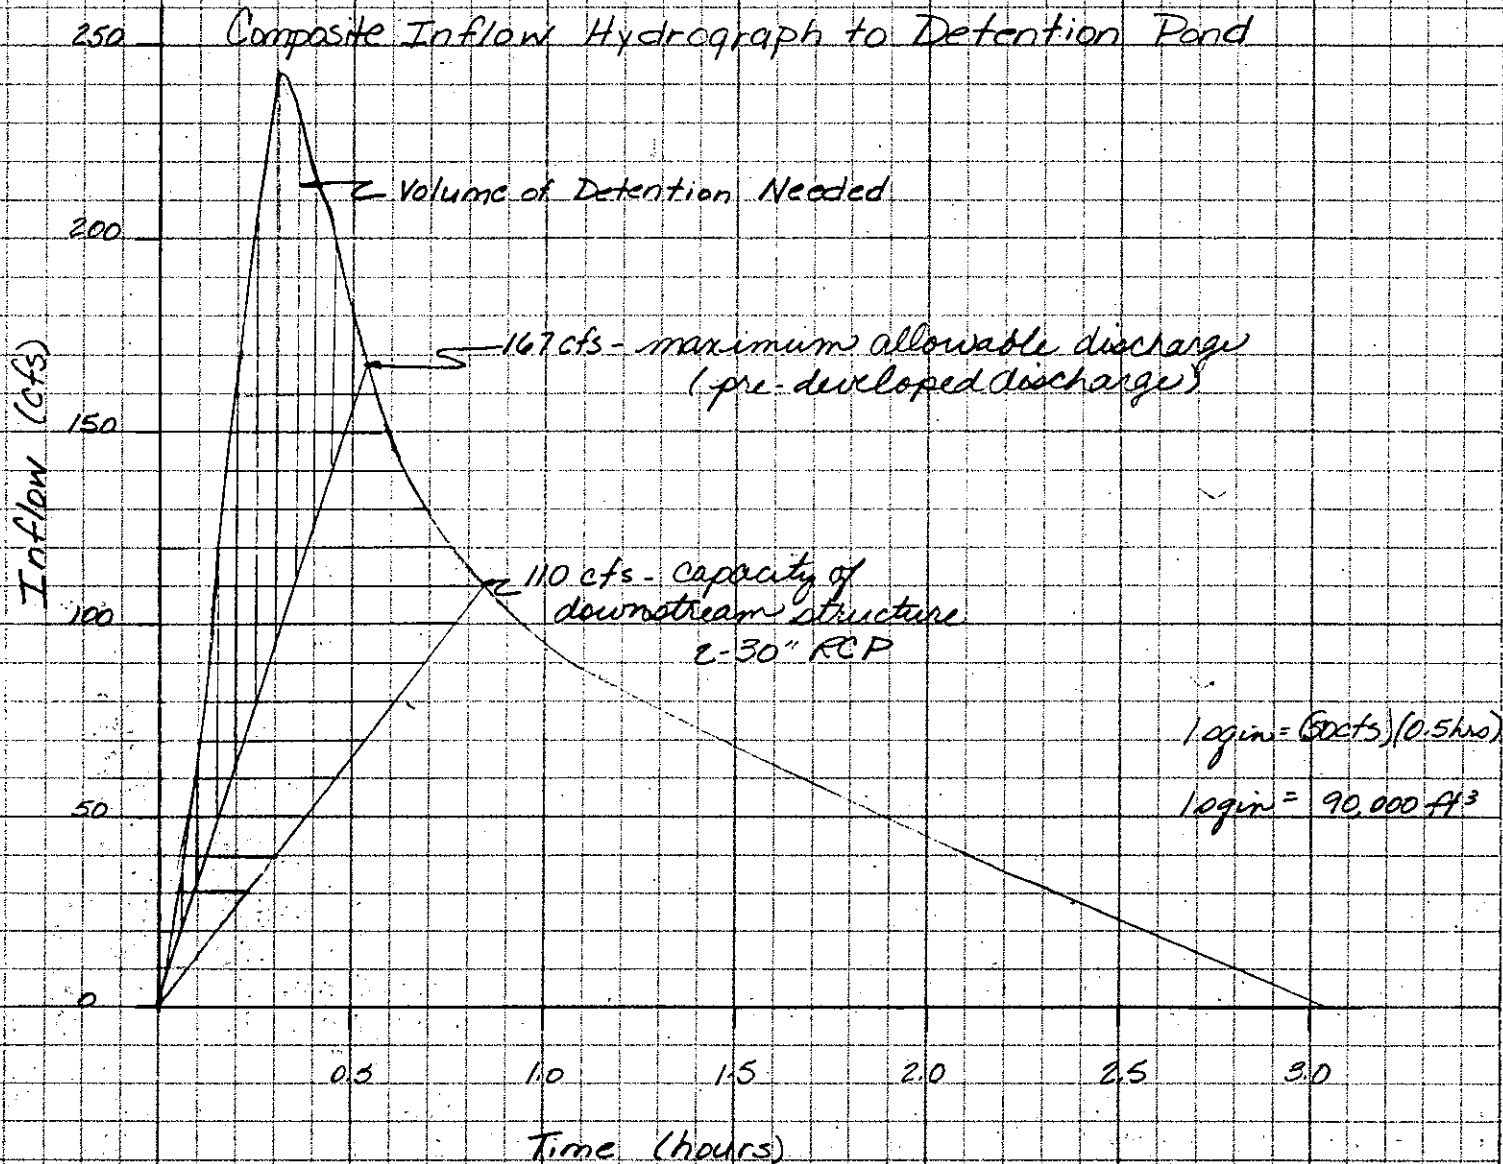 Composite Inflow Hydrograph to Detention Pond
250
200
150
100
50
0
Inflow (cfs)
Volume of Detention Needed
167 cfs - maximum allowable discharge
(pre-developed discharge)
110 cfs - capacity of
downstream structure
2-30" RCP
1 sqin = (50cfs)(0.5hrs)
1 sqin = 90,000 ft³
0.5 1.0 1.5 2.0 2.5 3.0
Time (hours)